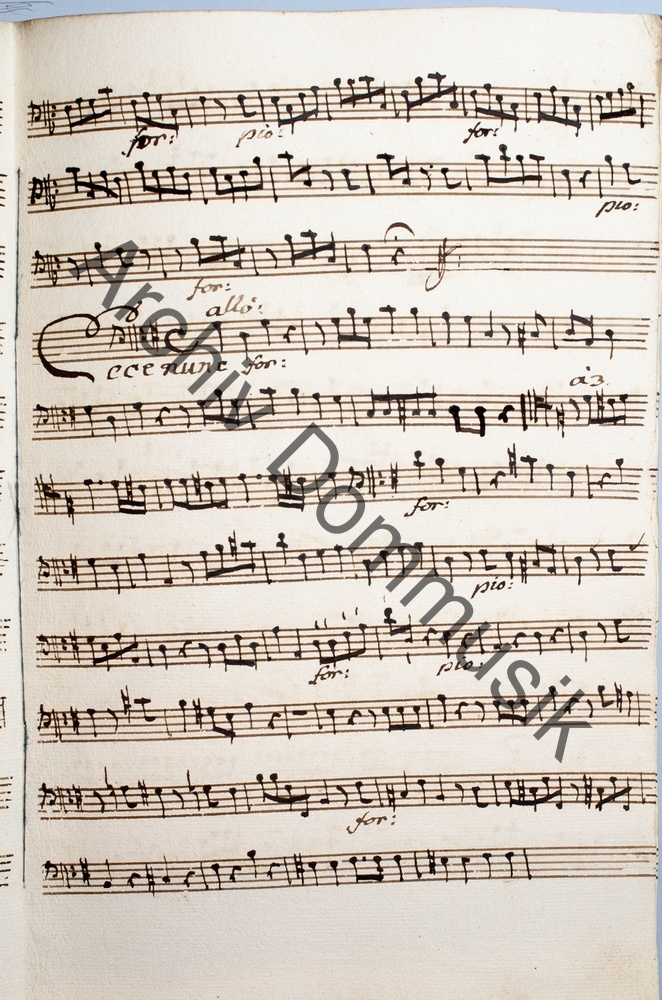 for: pio: for:
pio:
for:
allo:
Ecce nunc for:
à3.
for:
pio:
for: pio:
for:
Archiv Dommusik